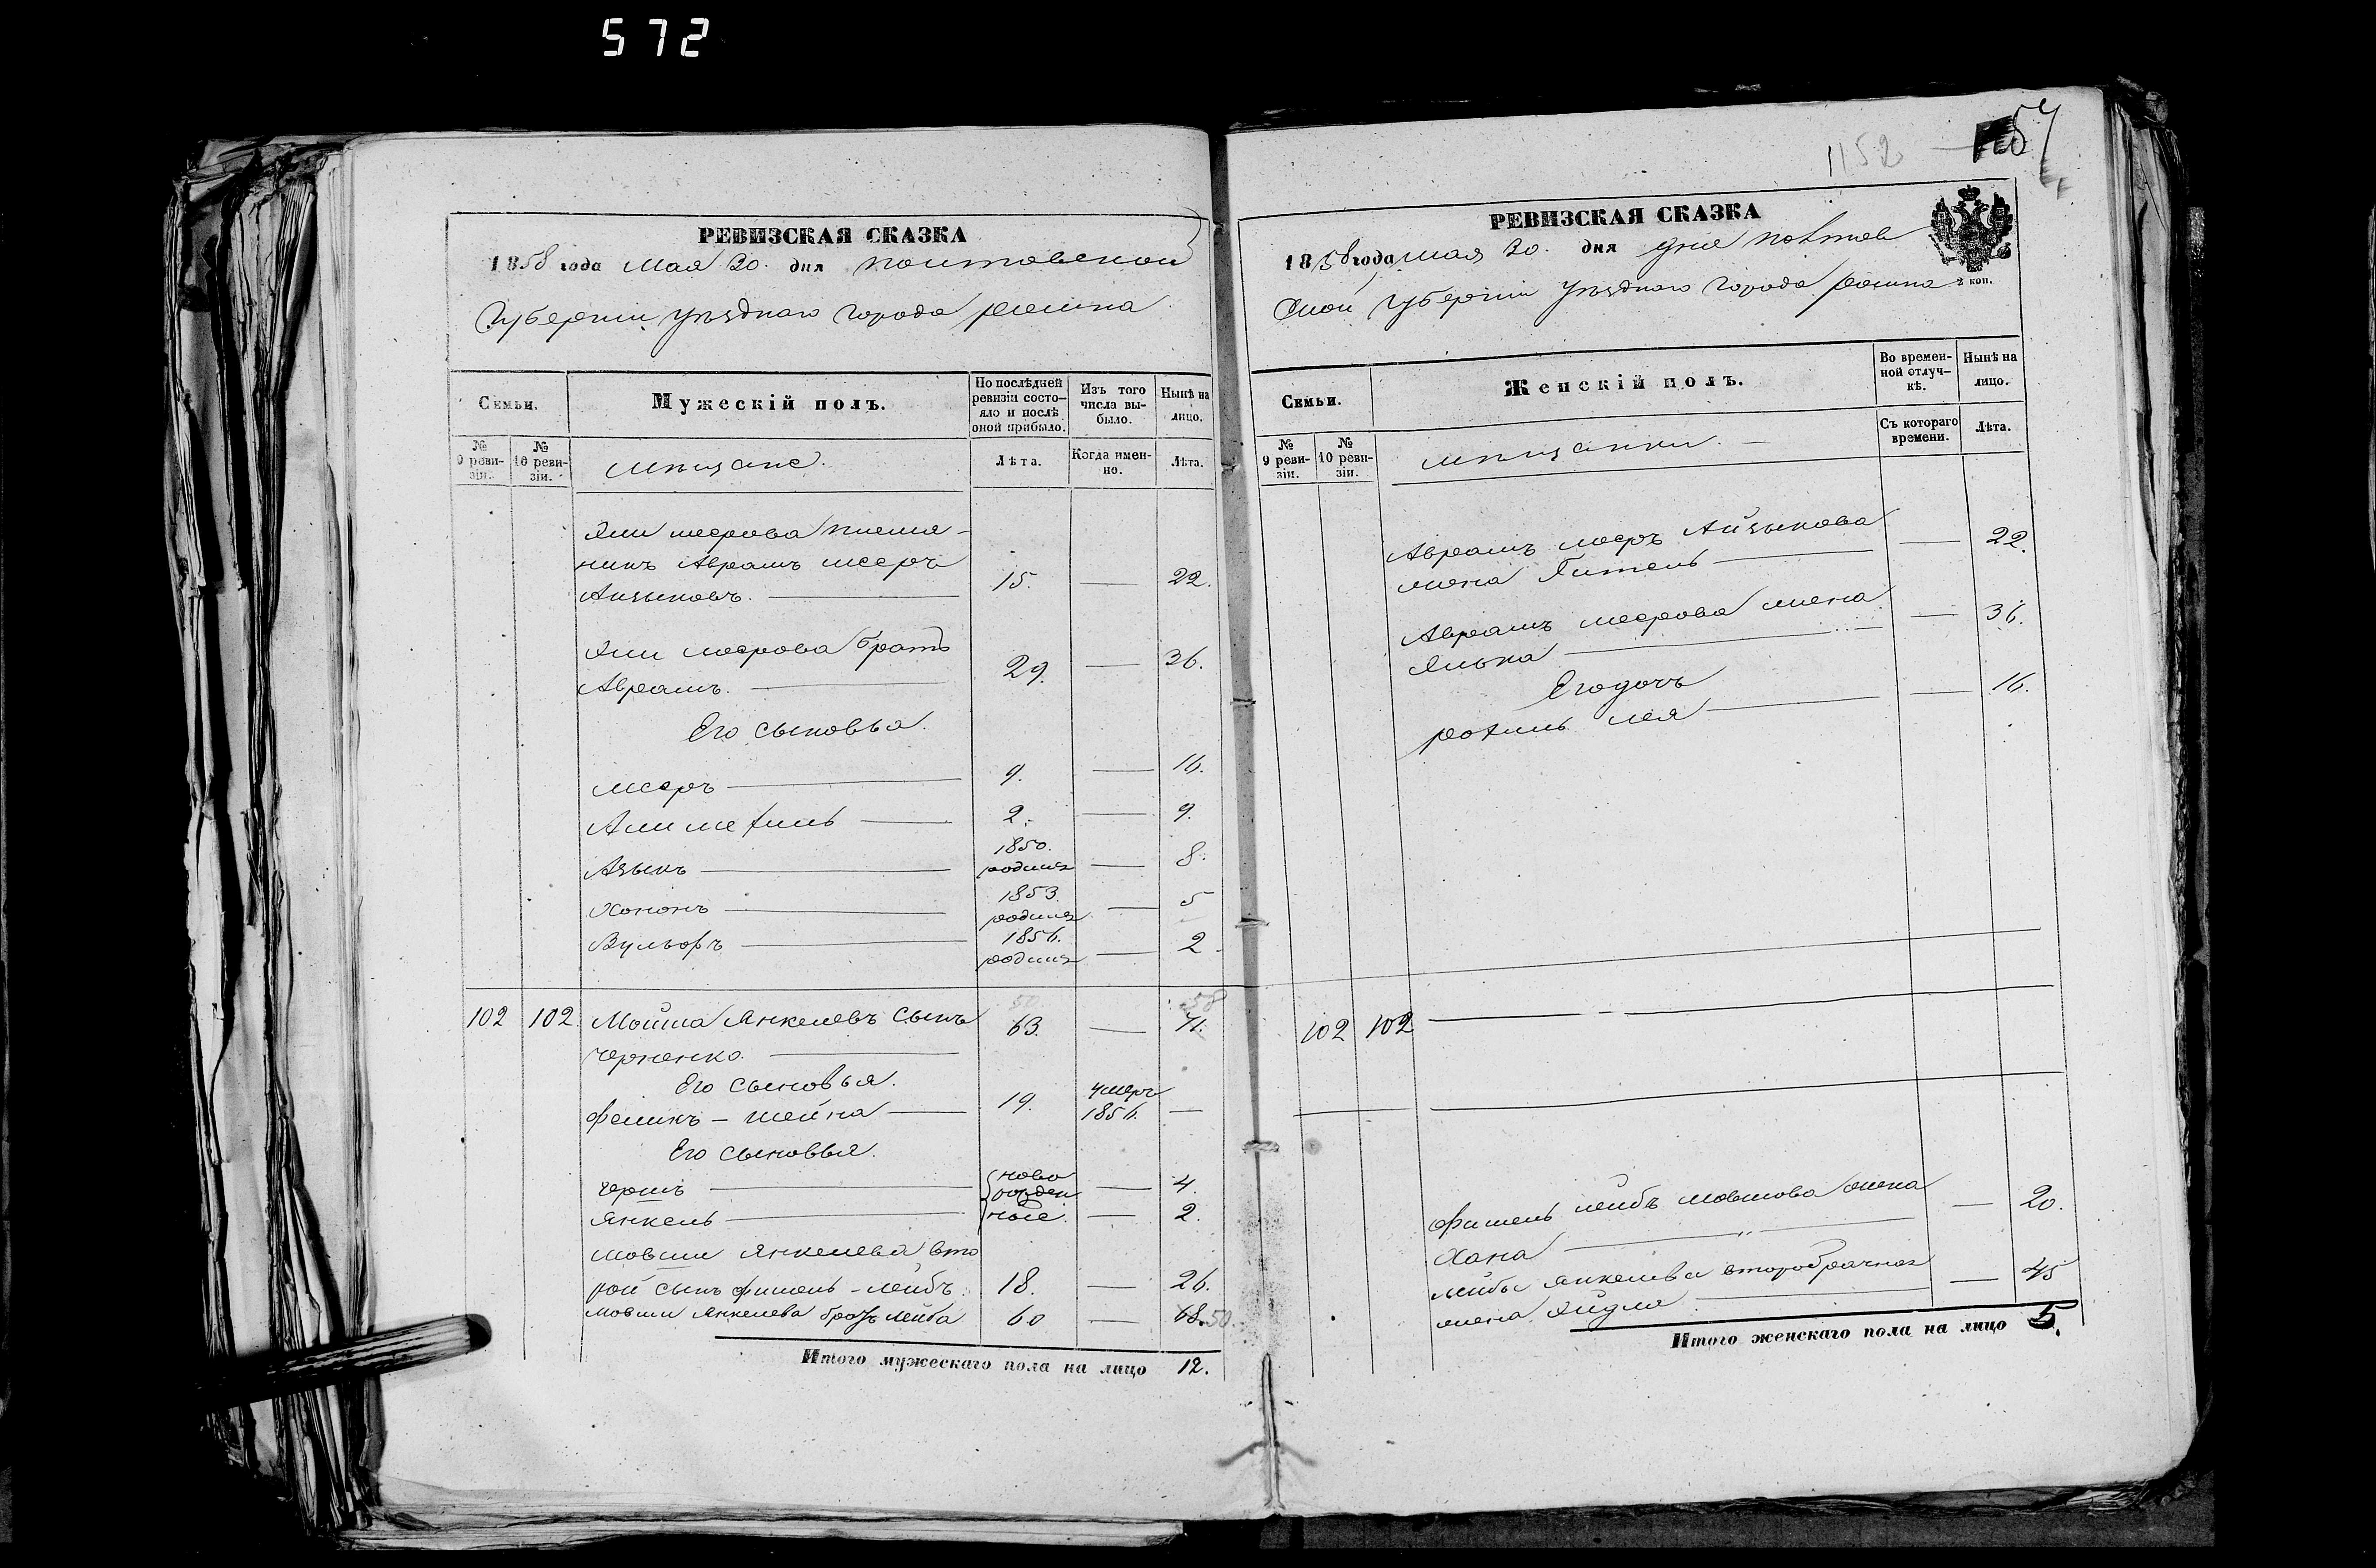 572
РЕВИЗСКАЯ СКАЗКА
1858 года Мая 30. дня полтавской
Губернии уѣзднаго города ромна
Семьи.
Мужескій полъ.
По послѣдней ревизіи состояло и послѣ оной прибыло.
Изъ того числа выбыло.
Нынѣ на лицо.
№ 9 ревизіи.
№ 10 ревизіи.
мѣщане.
Лѣта.
Когда именно.
Лѣта.
меерова племя-
никъ Аврамъ мееръ
Айзыковъ. 15. — 22.
меерова братъ
Аврамъ. 29. — 36.
Его сыновья.
мееръ 9. — 16.
2. — 9.
Азыкъ 1850. родился — 8.
Хононъ 1853. родился — 5
Вульфъ 1856. родился — 2
50. 58
102 102. Мойша Янкелевъ сынъ 63. — 71.
Черненко.
Его сыновья.
шейна 19. умеръ 1856. —
Его сыновья.
герть новорожденные. — 4.
Янкель — 2.
мовши Янкелева вто
рой сынъ фишель-лейбъ. 18. — 26.
мовши Янкелева братъ лейба 60 — 68. 50.
Итого мужескаго пола на лицо 12.
1152
57
РЕВИЗСКАЯ СКАЗКА
1858 года мая 30. дня дня полтав
ской Губерніи уѣзднаго города ромна
2 коп.
Семьи.
Женскій полъ.
Во временной отлучкѣ.
Нынѣ на лицо.
№ 9 ревизіи.
№ 10 ревизіи.
мѣщанки.
Съ котораго времени.
Лѣта.
Аврамъ мееръ Айзыкова
жена — 22.
Аврамъ меерова жена — 36.
Его дочъ
лея — 16.
102 102
фишель лейбъ мовшова жена — 20.
Хана
лейбы Янкелева второбрачная — 45
жена
Итого женскаго пола на лицо 5.